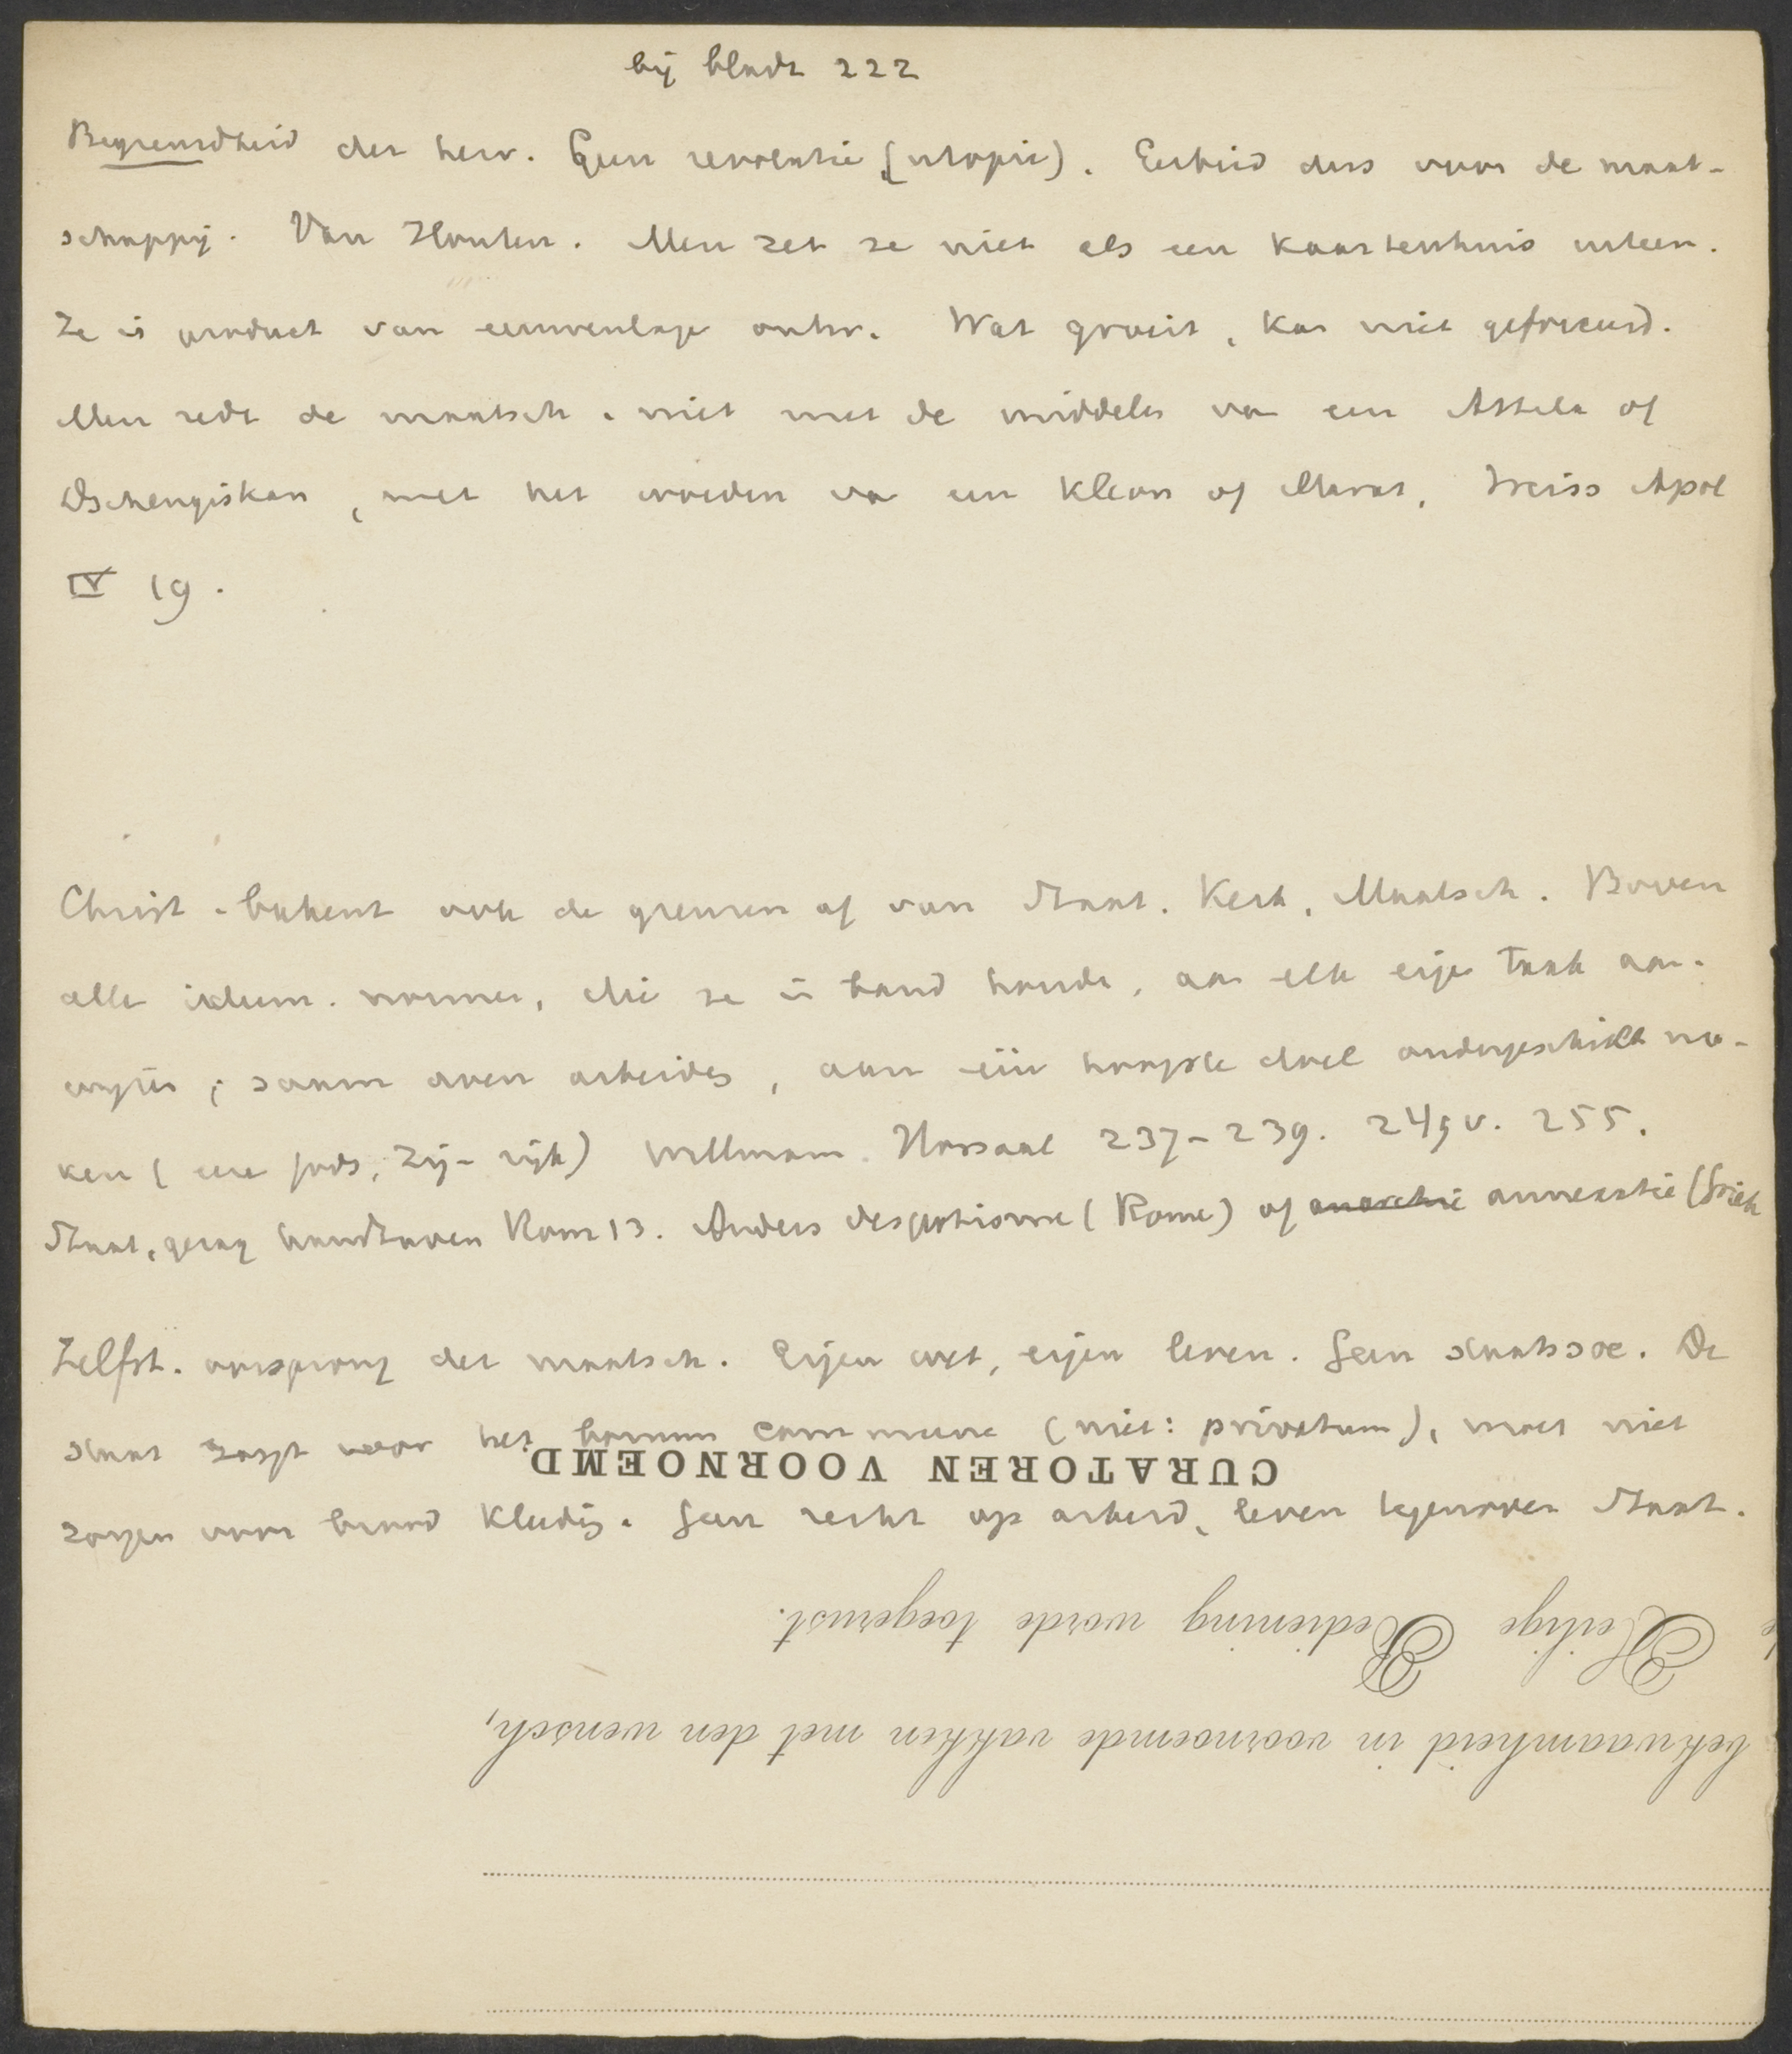 bij bladz 222
Begrensdheid der herv. Geen revolutie (utopie). Eerbied dus voor de maat-
schappij. Van Houten. Men zet ze niet als een kaartenhuis ineen.
Ze is product van eeuwenlange ontw. Wat groeit, kan niet geforceerd.
Men redt de maatsch. niet met de middelen van een Attila of
Dschengiskan, met het woeden van een Kleon of Marat. Weiss Apol
IV 19.
Christ. bakent ook de grenzen af van Staat. Kerk. Maatsch. Boven
alle normen, die ze in band houden, aan elk eigen taak aan-
wijzen; saam doen arbeiden, aan één hoogste doel ondergeschikt ma-
ken (ere Gods, Zijn rijk) Willmann. Nossaal 237-239. 249v. 255.
Staat, gezag handhaven Rom 13. Anders despotisme (Rome) of anarchie annexatie (Griek
Zelfst. oorsprong der maatsch. Eigen wet, eigen leven. Geen staatssoc. De
staat zorgt voor het bonum commune (niet: privatum), moet niet
CURATOREN VOORNOEMD
zorgen voor brood kleding. Geen recht op arbeid, leven tegenover Staat.
Heilige Bediening worde toegerust.
bekwaamheid in voornoemde vakken met den wensch,